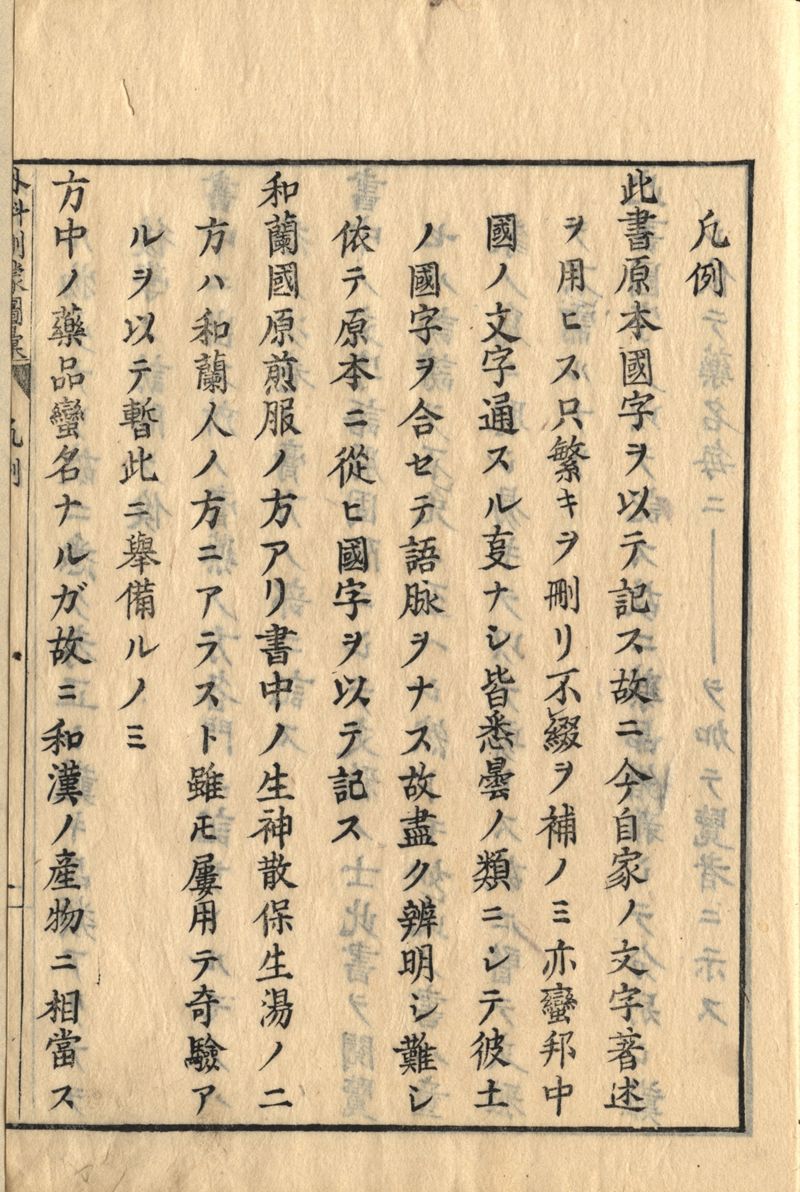 凡例
此書原本國字ヲ以テ記ス故ニ今自家ノ文字著述
ヲ用ヒス只繁キヲ刪リ不綴ヲ補ノミ亦蠻邦中
國ノ文字通スル𫝂ナシ皆悉曇ノ類ニシテ彼土
ノ國字ヲ合セテ語脉ヲナス故盡ク辨明シ難シ
依テ原本ニ從ヒ國字ヲ以テ記ス
和蘭國原煎服ノ方アリ書中ノ生神散保生湯ノ二
方ハ和蘭人ノ方ニアラスト雖𪜈屢用テ奇驗ア
ルヲ以テ暫此ニ舉備ルノミ
方中ノ藥品蠻名ナルガ故ニ和漢ノ產物ニ相當ス
凡例